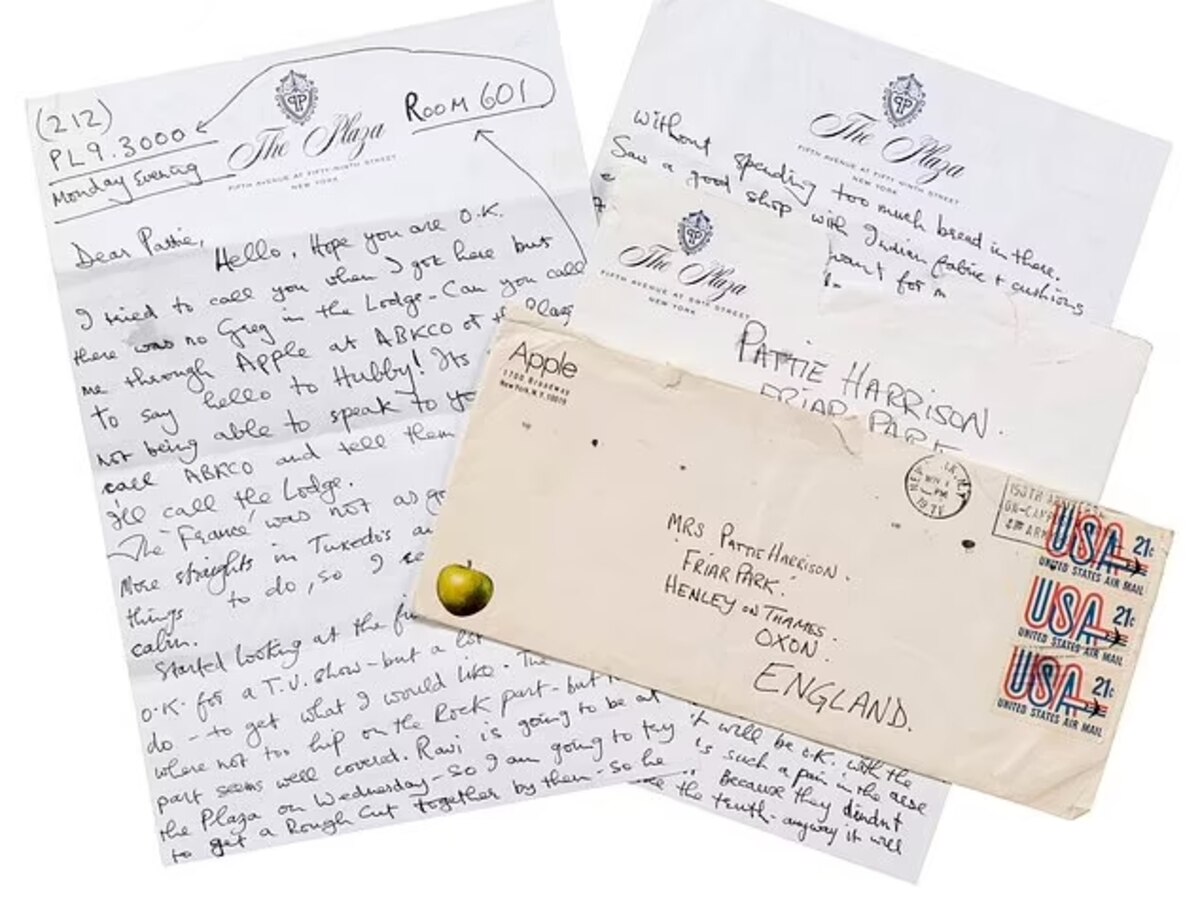 (212)
PL9.3000
Monday Evening
The Plaza
FIFTH AVENUE AT FIFTY-NINTH STREET
NEW YORK
ROOM 601
Dear Pattie,
Hello, Hope you are O.K.
I tried to call you when I got here but
there was no Greg in the Lodge - Can you call
me through Apple at ABKCO or the Plaza
To say hello to Hubby! Its
not being able to speak to
call ABKCO and tell them
I'll call the Lodge.
The 'France' was not as
More straights in Tuxedo's
things to do, so I
calm.
Started looking at the
O.K. for a T.V. show - but a lot
do - to get what I would like. The
where not too hip on the Rock part - but
part seems well covered. Ravi is going to be at
the Plaza on Wednesday - So I am going to try
to get a Rough Cut together by then - So he
The Plaza
FIFTH AVENUE AT FIFTY-NINTH STREET
NEW YORK
without spending too much bread in there.
Saw a good shop with Indian fabric + cushions
want for
The Plaza
FIFTH AVENUE AT 59TH STREET
NEW YORK
PATTIE HARRISON.
FRIAR PARK
Apple
1700 BROADWAY
New York, N.Y. 10019
MRS PATTIE HARRISON.
'FRIAR PARK'.
HENLEY ON THAMES.
OXON.
ENGLAND.
USA 21c
UNITED STATES AIR MAIL
USA 21c
UNITED STATES AIR MAIL
USA 21c
UNITED STATES AIR MAIL
it will be O.K. with the
is such a pain in the arse
Because they didn't
the truth - anyway it will